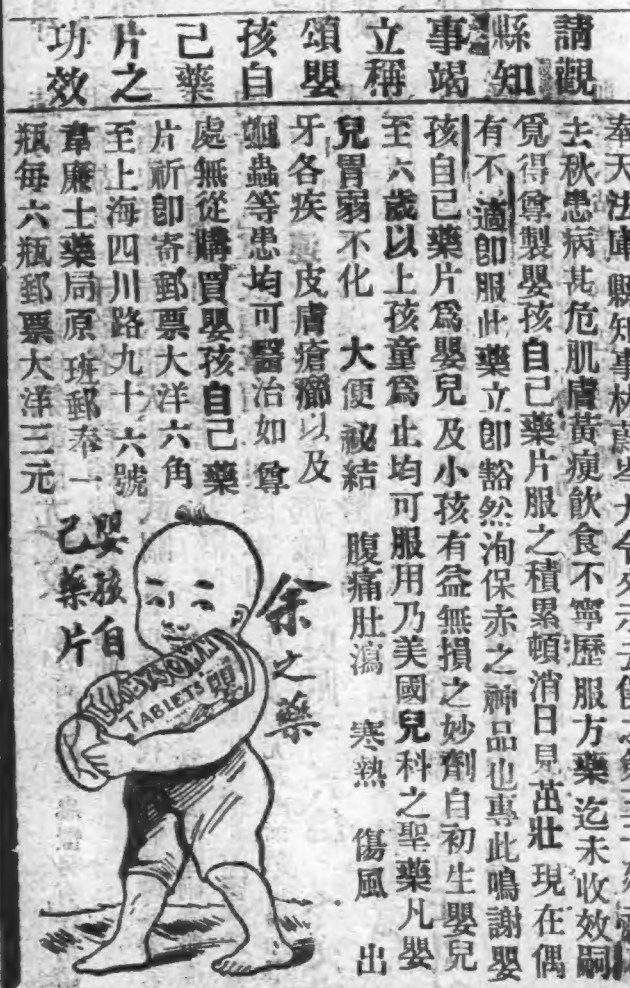 請觀
縣知
事竭
立稱
頌嬰
孩自
己藥
片之
功效
奉天法庫縣知事林
去秋患病甚危肌膚黃瘦飲食不寧歷服方藥迄未收效嗣
覓得尊製嬰孩自己藥片服之積累頓消日見茁壯現在偶
有不適卽服此藥立卽豁然洵保赤之神品也專此鳴謝嬰
孩自己藥片爲嬰兒及小孩有益無損之妙劑自初生嬰兒
至六歲以上孩童爲止均可服用乃美國兒科之聖藥凡嬰
兒胃弱不化 大便祕結 腹痛肚瀉 寒熱 傷風 出
牙各疾 皮膚瘡癤以及
蛔蟲等患均可醫治如尊
處無從購買嬰孩自己藥
片祈卽寄郵票大洋六角
至上海四川路九十六號
韋廉士藥局原班郵奉一
瓶每六瓶郵票大洋三元
余之藥
嬰孩自
己藥片
TABLETS